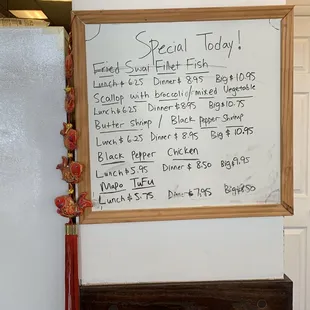 Special Today!
Fried Swai Fillet Fish
Lunch $ 6.25 Dinner $ 8.95 Big $ 10.95
Scallop with Broccolic/mixed Vegetable
Lunch $ 6.25 Dinner $ 8.95 Big $ 10.75
Butter Shrimp / Black Pepper Shrimp
Lunch $ 6.25 Dinner $ 8.95 Big $ 10.95
Black Pepper Chicken
Lunch $ 5.95 Dinner $ 8.50 Big $ 9.95
Mapo ToFu
Lunch $ 5.75 $ 7.95 Big